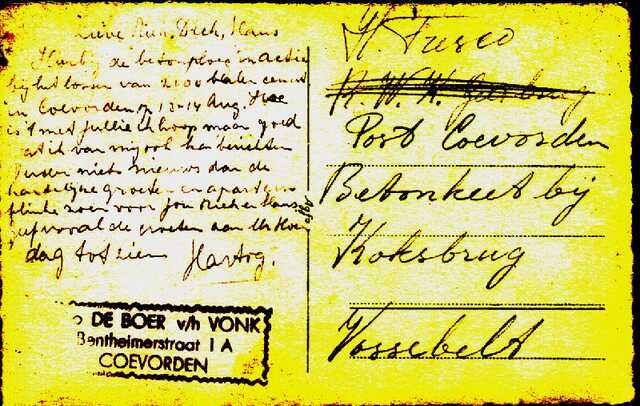 Lieve Rien, Dick, Hans
Hierbij de betonploeg in actie
bij het lossen van 2000 balen cement
in Coevorden op 12-14 Aug. Hoe
is 't met jullie ik hoop maar goed
wat ik van mij ook kan berichten
Verder niets nieuws dan de
hartelijke groeten en apart een
flinke zoen voor jou Riek en Hans
Geef vooral de groeten aan
dag tot zien Hartog.
H. Fresco
R. W. K.
Post Coevorden
Betonkeet bij
Koksbrug
Vossebelt
DE BOER v/h VONK
Bentheimerstraat 1 A
COEVORDEN